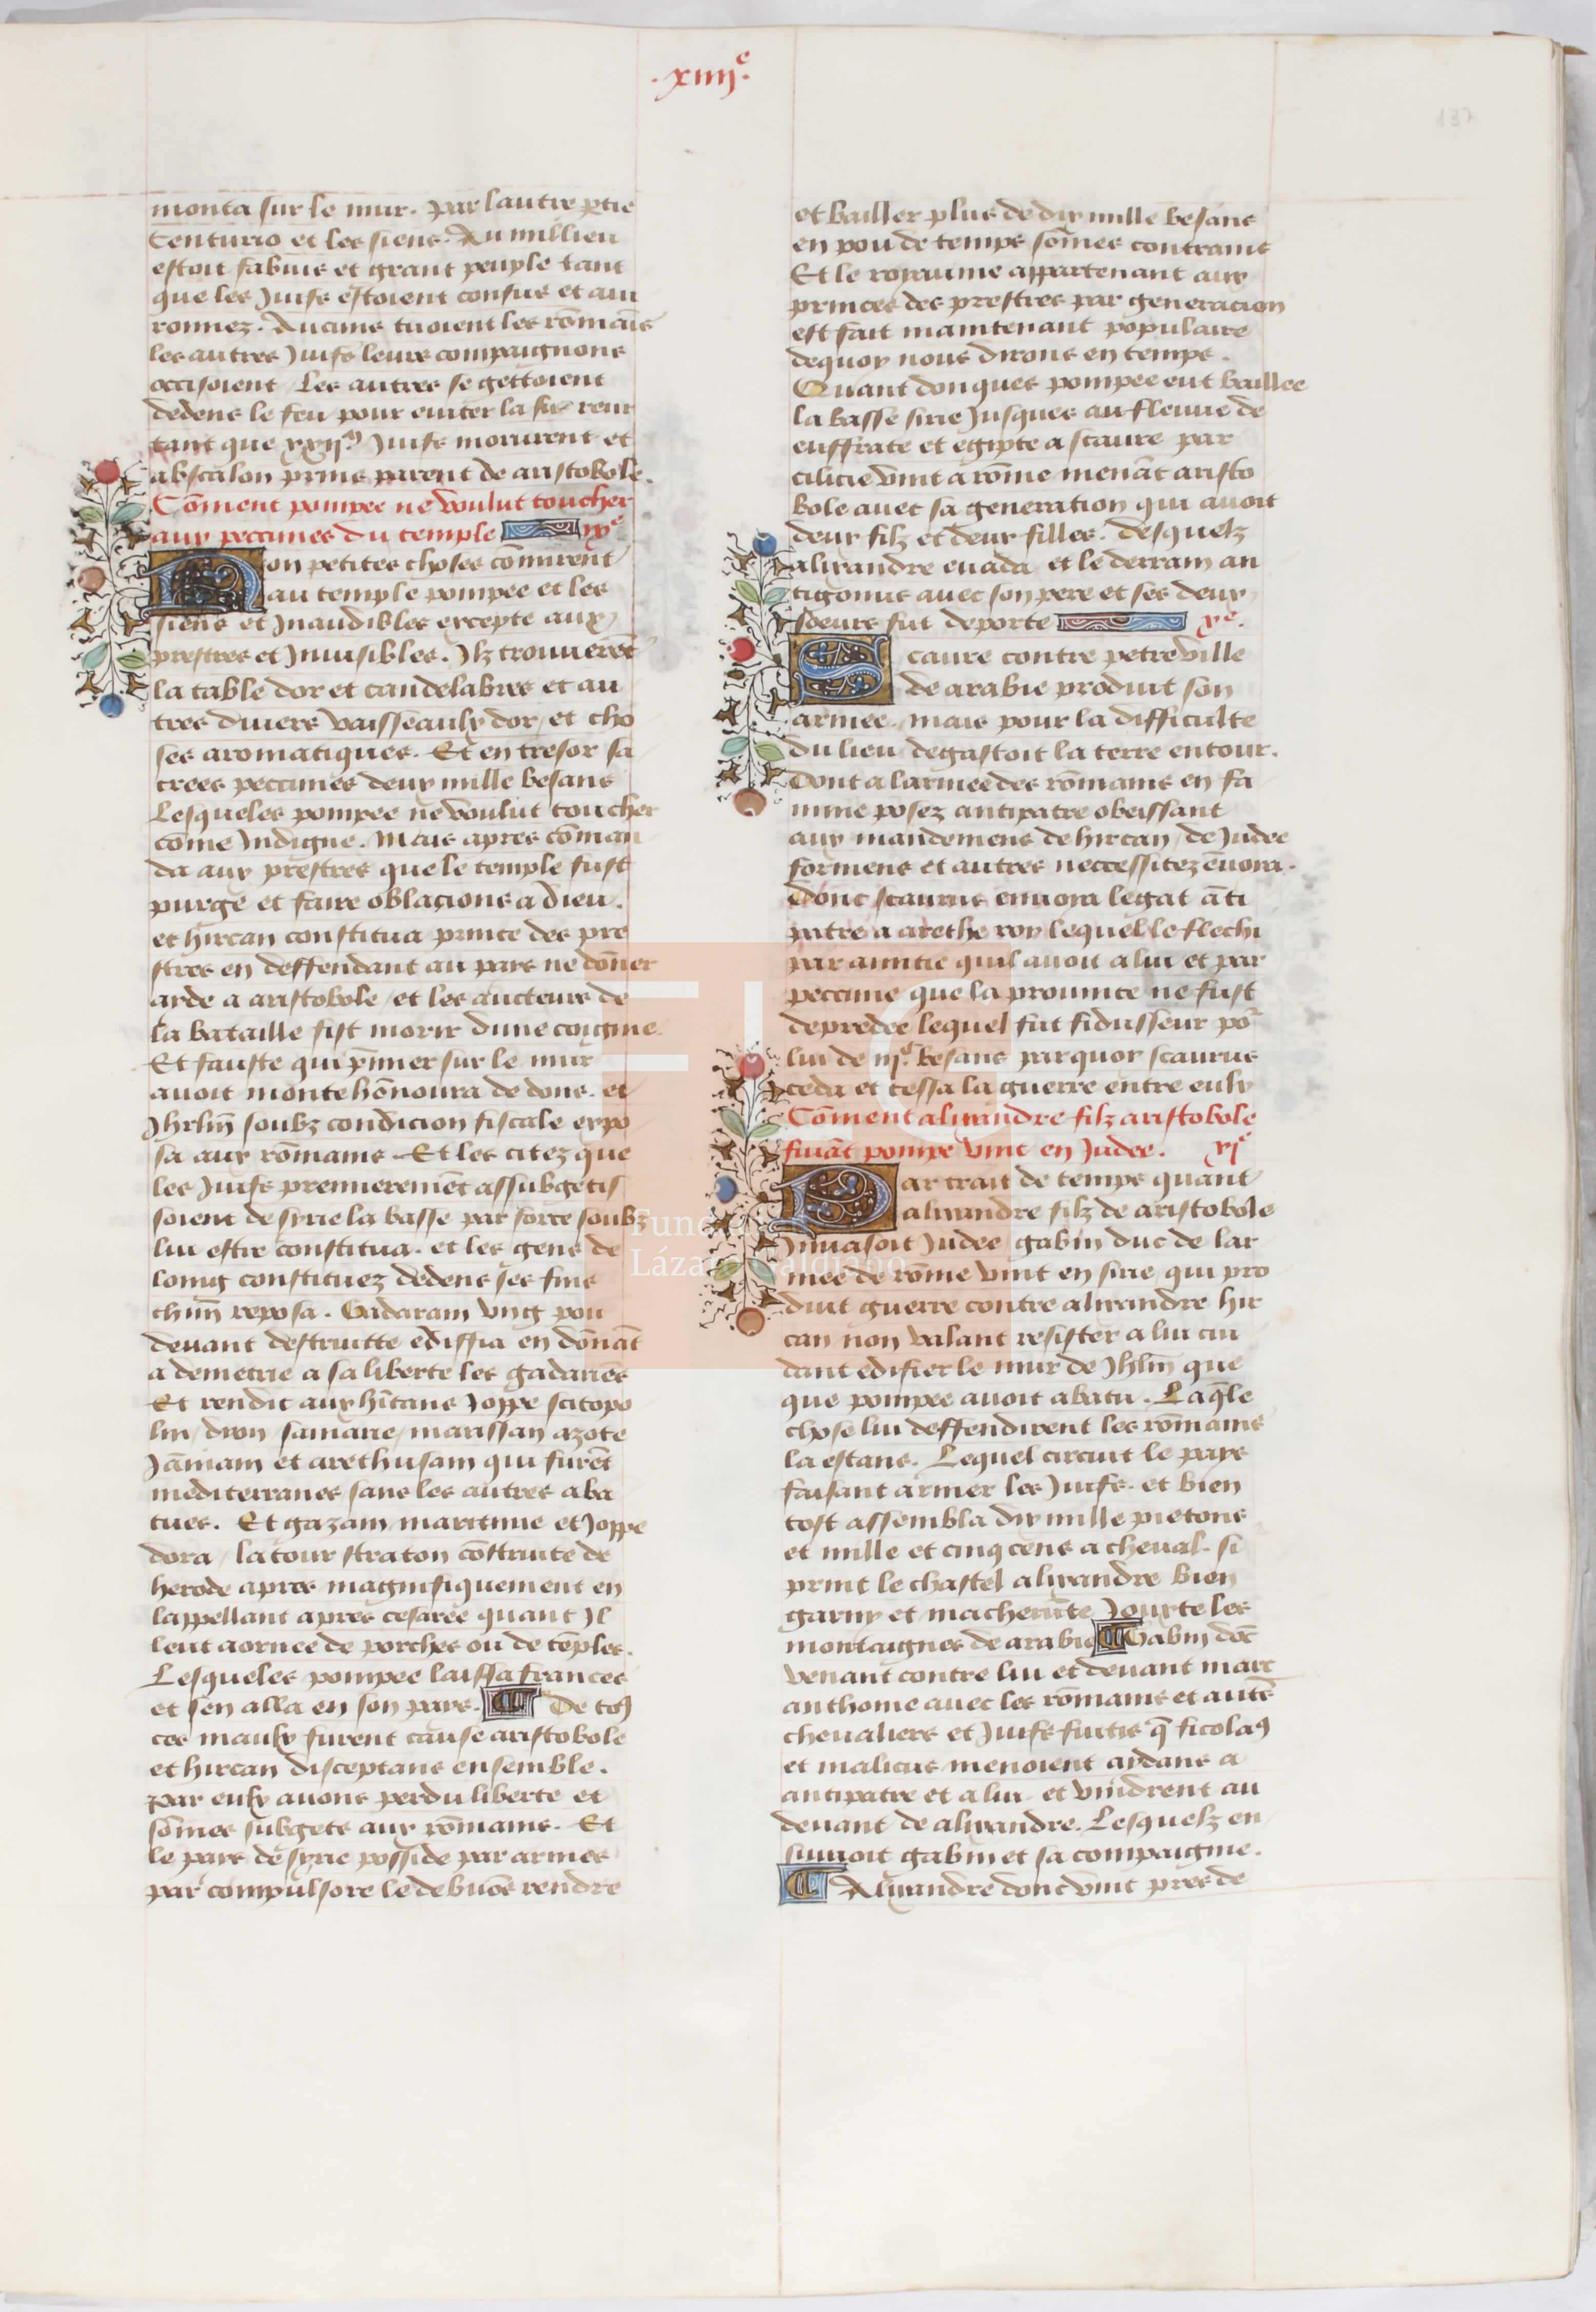 .xiiij.e
137
monta sur le mur. par lautre ptie
Centurio et les siens. Au millieu
estoit fabius et grant peuple tant
que les Juifs estoient confus et aui
ronnez. Aucuns tuoient les romais
les autres Juifs leurs compaignons
occisoient. Les autres se gettoient
dedens le feu pour euiter la fu reur
tant que xxijm Juifs morurent et
abscalon prins parent de aristobole.
Coment pompee ne voulut toucher
aux peccunes du temple
Non petites choses comirent
au temple pompee et les
siens et Jnaudibles excepte aux
prestres et Jnuisibles. Ilz trouueret
la table dor et candelabres et au
tres diuers vaisseaulx dor, et cho
ses aromatiques. Et en tresor sa
crees peccunes deux mille besans
Lesqueles pompee ne voulut toucher
come Jndigne. Mais apres coman
da aux prestres que le temple fust
purge et faire oblacions a dieu.
et hircan constitua prince des pre
stres en deffendant au pais ne doner
aide a aristobole, et les aucteurs de
la bataille fist morir dune coignie
Et fauste qui pmier sur le mur
auoit monte honnoura de dons. et
Jhrlm soubz condicion fiscale expo
sa aux romains. Et les citez que
les Juifs premieremet assubgetis
soient de syrie la basse par force soubz
lui estre constitua. et les gens de
loing constituez dedens ses fins
chun reposa. Gadaram vng pou
deuant destruitte ediffia en donat
a demetrie a sa liberte les gadaries
Et rendit aux hitans Joppe scitopo
lin, dion, samarie, marissan azote
Jamam et arethusam qui furet
mediterranes sans les autres aba
tues. Et gazam maritime et Joppe
dora, la tour straton construite de
herode apres magnifiquement en
lappellant apres cesaree quant Jl
leut aornee de porches ou de teples.
Lesqueles pompee laissa frances
et sen alla en son pais. De to9
ces maulx furent cause aristobole
et hircan disceptans ensemble.
par eulx auons perdu liberte et
somes subgets aux romains. Et
le pais de syrie posside par armes
par compulsore le debuos rendre
et bailler plus de dix mille besans
en pou de temps somes contrains
Et le royaume appartenant aux
princes des prestres par generacion
est fait maintenant populaire
dequoy nous dirons en temps.
Quant donques pompee eut baillee
la basse sirie Jusques au fleuue de
euffrate et egipte a scaure par
cilicie vint a rome menat aristo
bole auec sa generation qui auoit
deux filz et deux filles. desquelz
alixandre euada, et le derrain an
tigonus auec son pere et ses deux
soeurs fut deporte xe.
Scaure contre petre ville
de arabie produit son
armee. mais pour la difficulte
du lieu degastoit la terre entour.
Dont a larmee des romains en fa
mine posez antipatre obeissant
aux mandemens de hircan, de Judee
formens et autres neccessitez enuoia.
Donc scaurus enuoya legat ati
patre a arethe roy lequel le flechi
par amitie quil auoit a lui et par
peccune que la prouince ne fust
depredee lequel fut fidusseur por
lui de iijc besans par quoy scaurus
ceda et cessa la guerre entre eulx
Coment alixandre filz aristobole
fuiat pompe vint en Judee. xje
Par trait de temps quant
alixandre filz de aristobole
Jnuasoit Judee gabin duc de lar
mee de rome vint en sirie, qui pro
duit guerre contre alixandre hir
can non valant resister a lui cui
dant edifier le mur de Jhrlm que
que pompee auoit abatu. Laqle
chose lui deffendirent les romains
la estans. Lequel circuit le pays
faisant armer les Juifs. et bien
tost assembla dix mille pietons
et mille et cinq cens a cheual. si
print le chastel alixandre bien
garny et macherute Jouxte les
montaignes de arabie Gabin doc
venant contre lui et deuant marc
anthoine auec les romains et autres
cheualiers et Juifs q ficola9
et malicus menoient aidans a
antipatre et a lui et vindrent au
deuant de alixandre. Lesquelz en
suiuoit gabin et sa compaignie.
Alixandre donc vint pres de
Fundación
Lázaro Galdiano